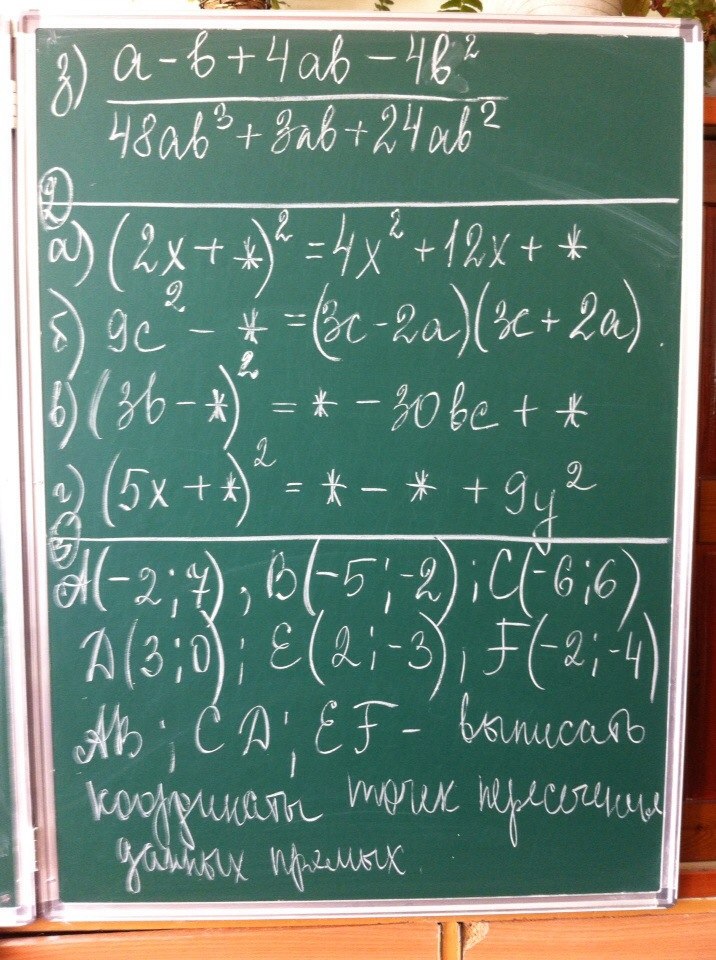 з) a - b + 4ab - 4b²
48ab³ + 3ab + 24ab²
②
а) (2x + *)² = 4x² + 12x + *
б) 9c² - * = (3c - 2a)(3c + 2a).
в) (3b - *)² = * - 30bc + *
г) (5x + *)² = * - * + 9y²
③
A(-2; 7), B(-5; -2); C(-6; 6)
D(3; 0); E(2; -3), F(-2; -4)
AB; CD; EF - выписать
координаты точек пересечения
данных прямых.